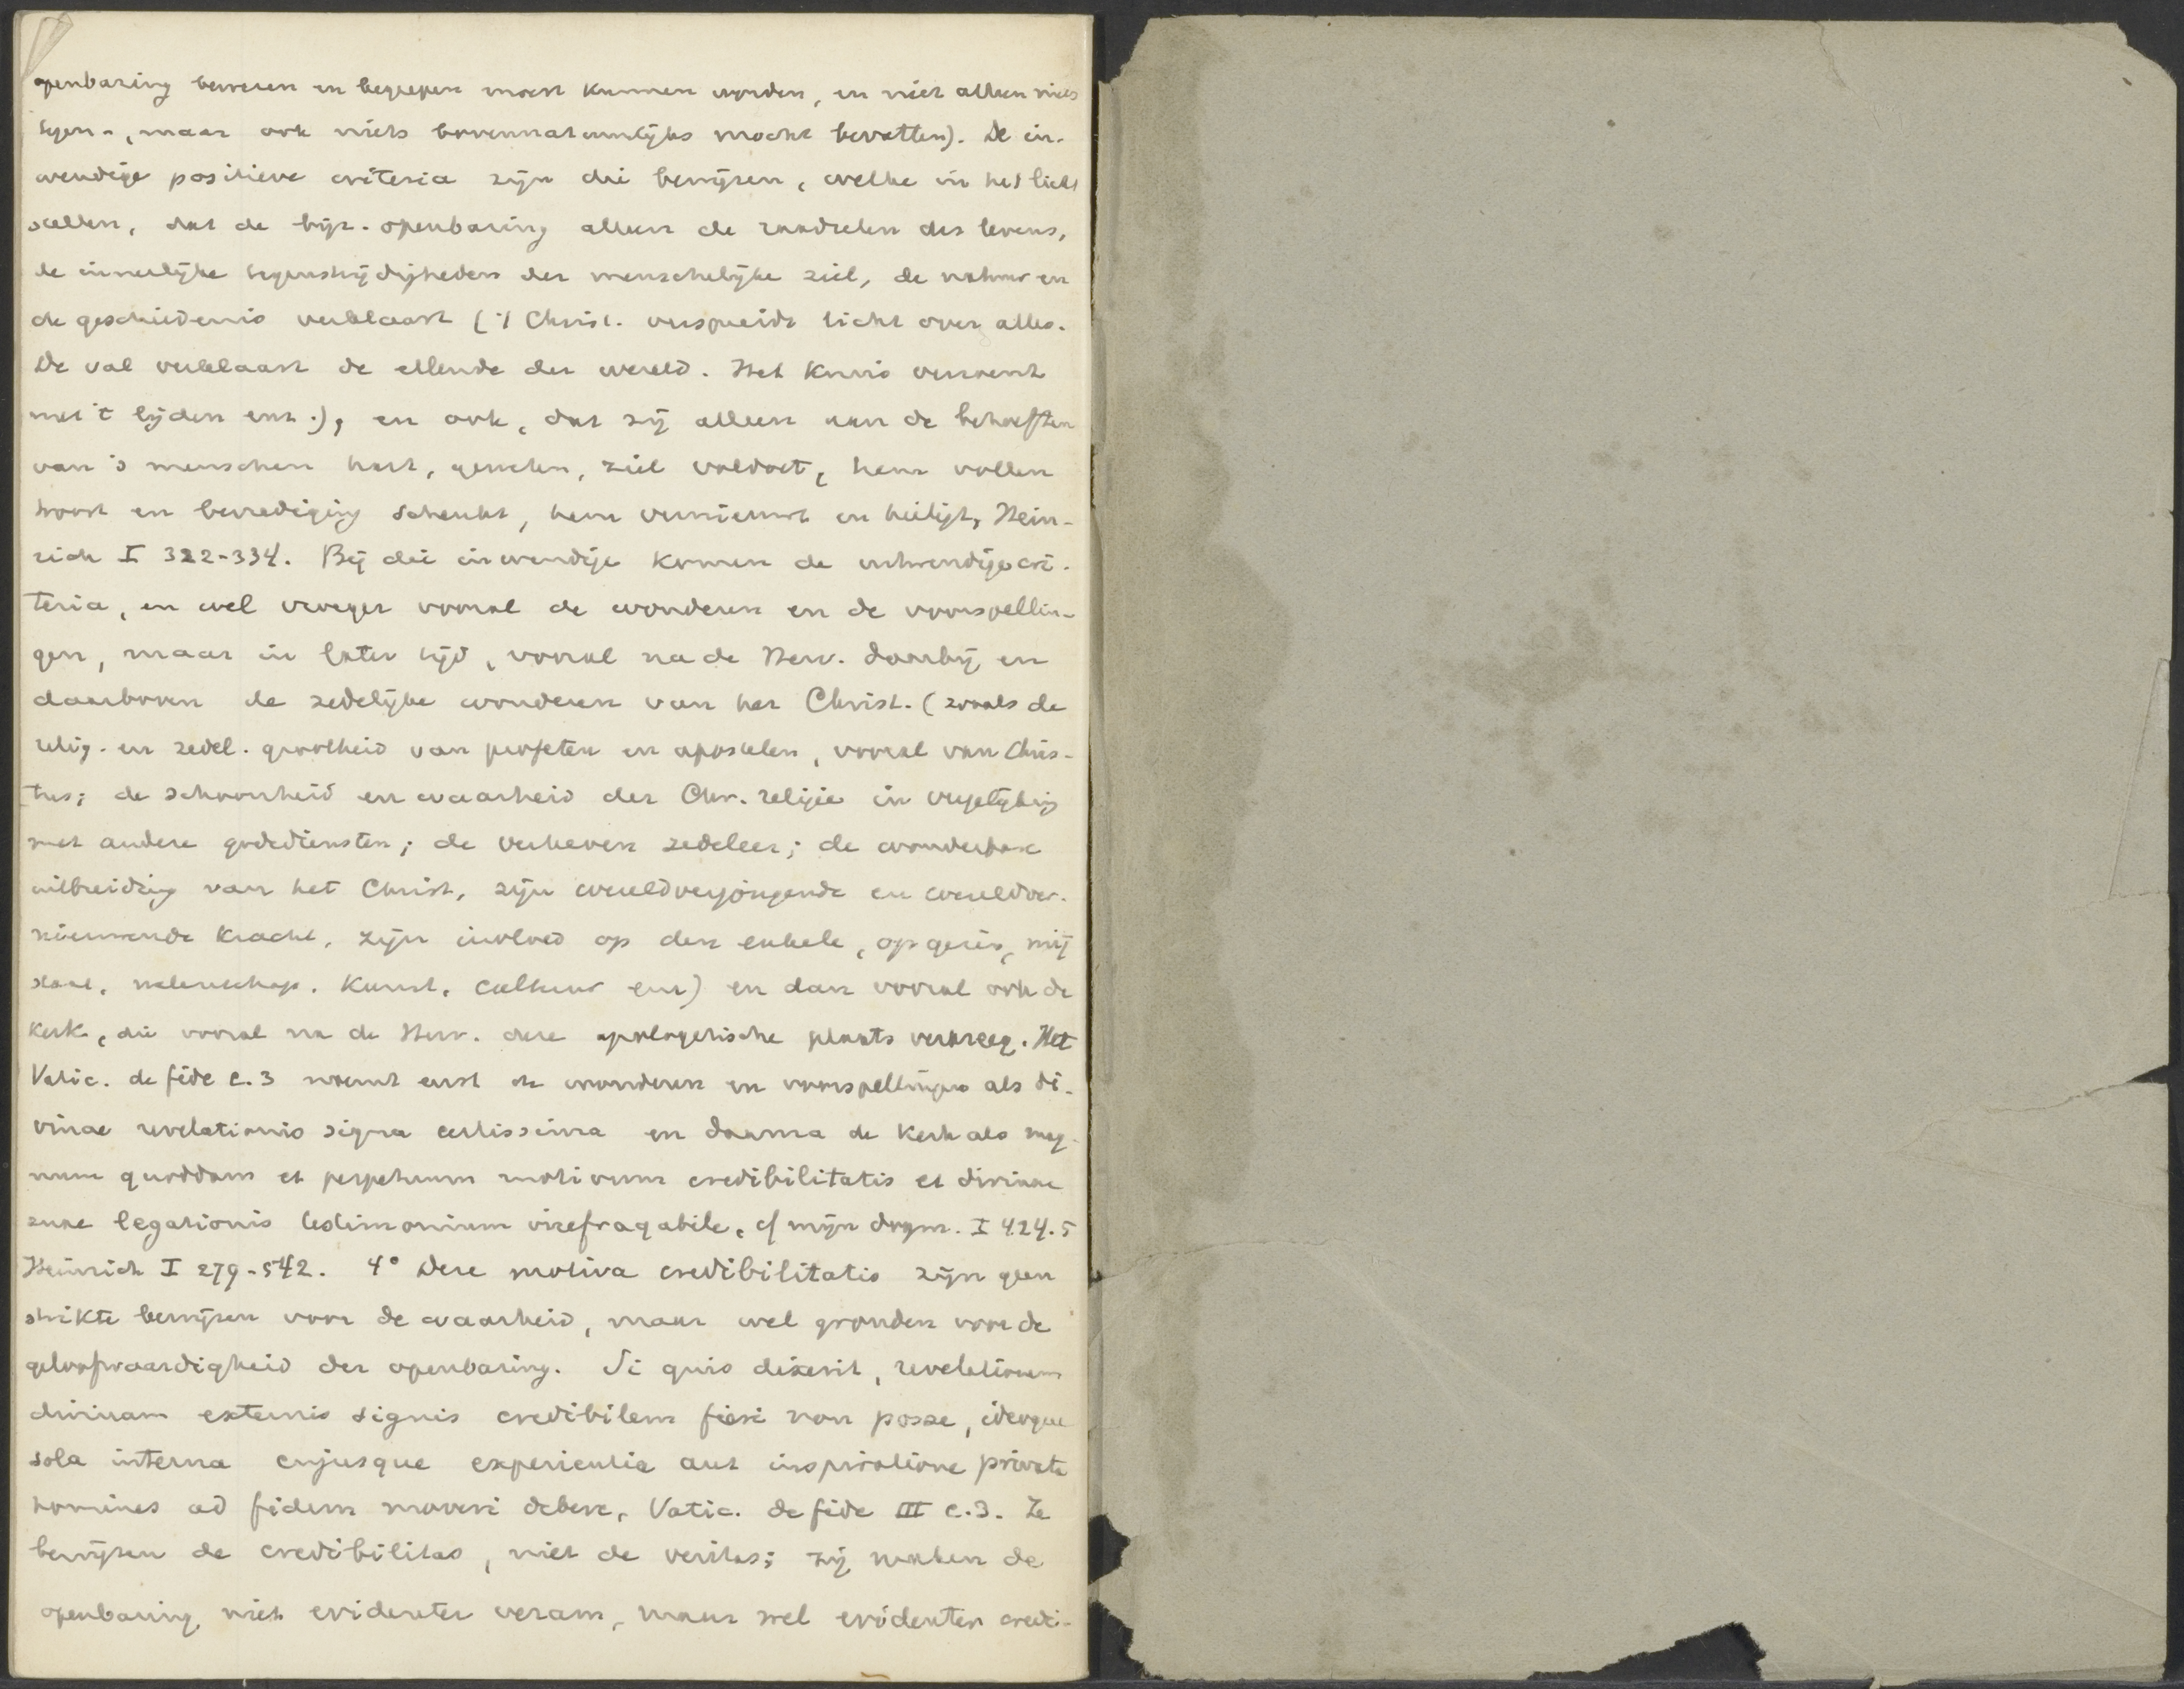 openbaring bewezen en begrepen moest kunnen worden, en niet alleen niets
tegen-, maar ook niets bovennatuurlijks mocht bevatten). De in-
wendige positieve criteria zijn die bewijzen, welke in het licht
stellen, dat de bijz. openbaring alleen de raadselen des levens,
de innerlijke tegenstrijdigheden der menschelijke ziel, de natuur en
de geschiedenis verklaart ('t Christ. verspreidt licht over alles.
De val verklaart de ellende der wereld. Het kruis verzoent
met 't lijden enz.), en ook, dat zij alleen aan de behoeften
van 's menschen hart, geweten, ziel voldoet, hem vollen
troost en bevrediging schenkt, hem vernieuwt en heiligt, Hein-
rich I 322-334. Bij die inwendige komen de uitwendige cri-
teria, en wel vroeger vooral de wonderen en de voorspellin-
gen, maar in later tijd, vooral na de Herv. daarbij en
daarboven de zedelijke wonderen van het Christ. (zooals de
relig. en zedel. grootheid van profeten en apostelen, vooral van Chris-
tus; de schoonheid en waarheid der Chr. religie in vergelijking
met andere godsdiensten; de verheven zedeleer; de wonderbare
uitbreiding van het Christ, zijn wereldverjongende en wereldver-
nieuwende kracht, zijn invloed op den enkele, op gezin, mij
staat, wetenschap, kunst, cultuur enz) en dan vooral ook de
kerk, die vooral na de Herv. deze apologetische plaats verkreeg. Het
Vatic. de fide c.3 noemt eerst de wonderen en voorspellingen als di-
vinae revelationis signa certissima en daarna de kerk als mag-
num quoddam et perpetuum motivum credibilitatis et divinae
suae legationis testimonium irrefragabile, cf mijn dogm. I 424.5
Heinrich I 279-542. 4° Deze motiva credibilitatis zijn geen
strikte bewijzen voor de waarheid, maar wel gronden voor de
geloofwaardigheid der openbaring. Si quis dixerit, revelationem
divinam externis signis credibilem fieri non posse, ideoque
sola interna cujusque experientia aut inspiratione privata
homines ad fidem moveri debere, Vatic. de fide III c.3. Ze
bewijzen de credibilitas, niet de veritas; zij maken de
openbaring niet evidenter veram, maar wel evidenter credi-